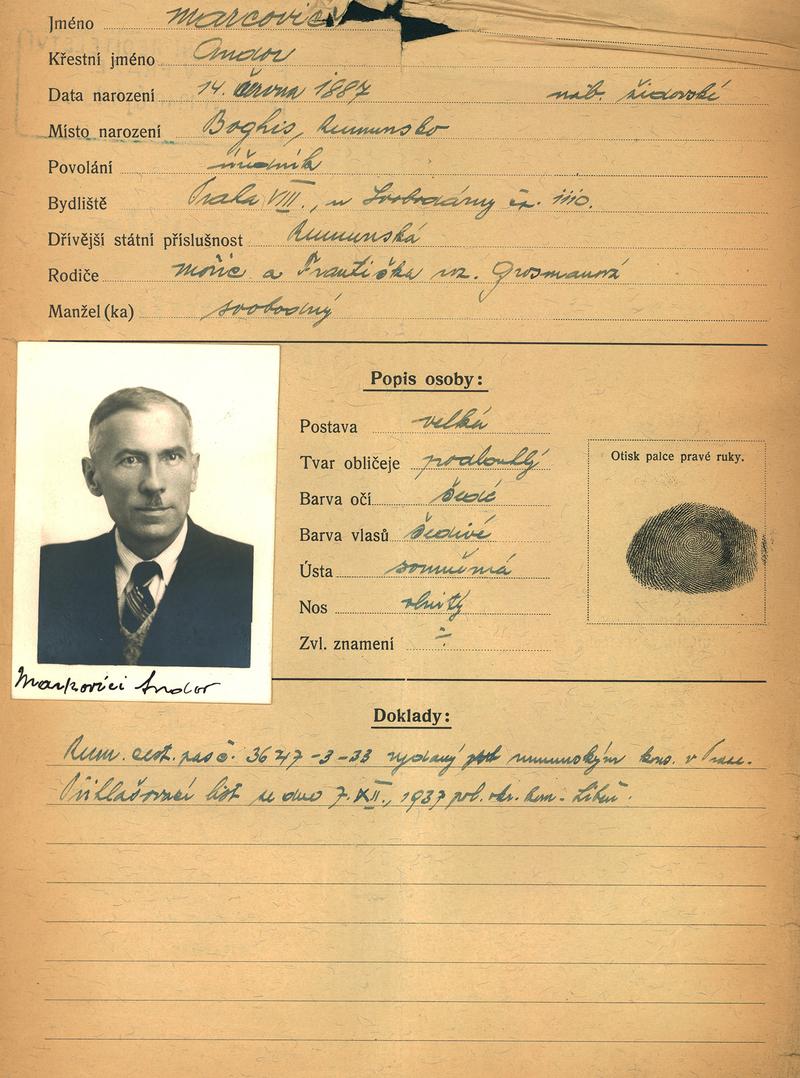 Jméno Marcovici
Křestní jméno Andor
Data narození 14. června 1887 náb. židovské
Místo narození Boghis, Rumunsko
Povolání úředník
Bydliště Praha VIII., u Svobodárny čp. 1110.
Dřívější státní příslušnost Rumunská
Rodiče Mořic a Františka roz. Grosmanová
Manžel (ka) svobodný
Popis osoby:
Postava velká
Tvar obličeje podlouhlý
Otisk palce pravé ruky.
Barva očí šedé
Barva vlasů šedivé
Ústa souměrná
Nos
Zvl. znamení
Markovici Andor
Doklady:
Rum. cest. pas č. 3647-3-33 vydaný rumunským kons. v Praze.
Přihlašovací list ze dne 7. XII., 1937 pol. okr. kom. Libeň.